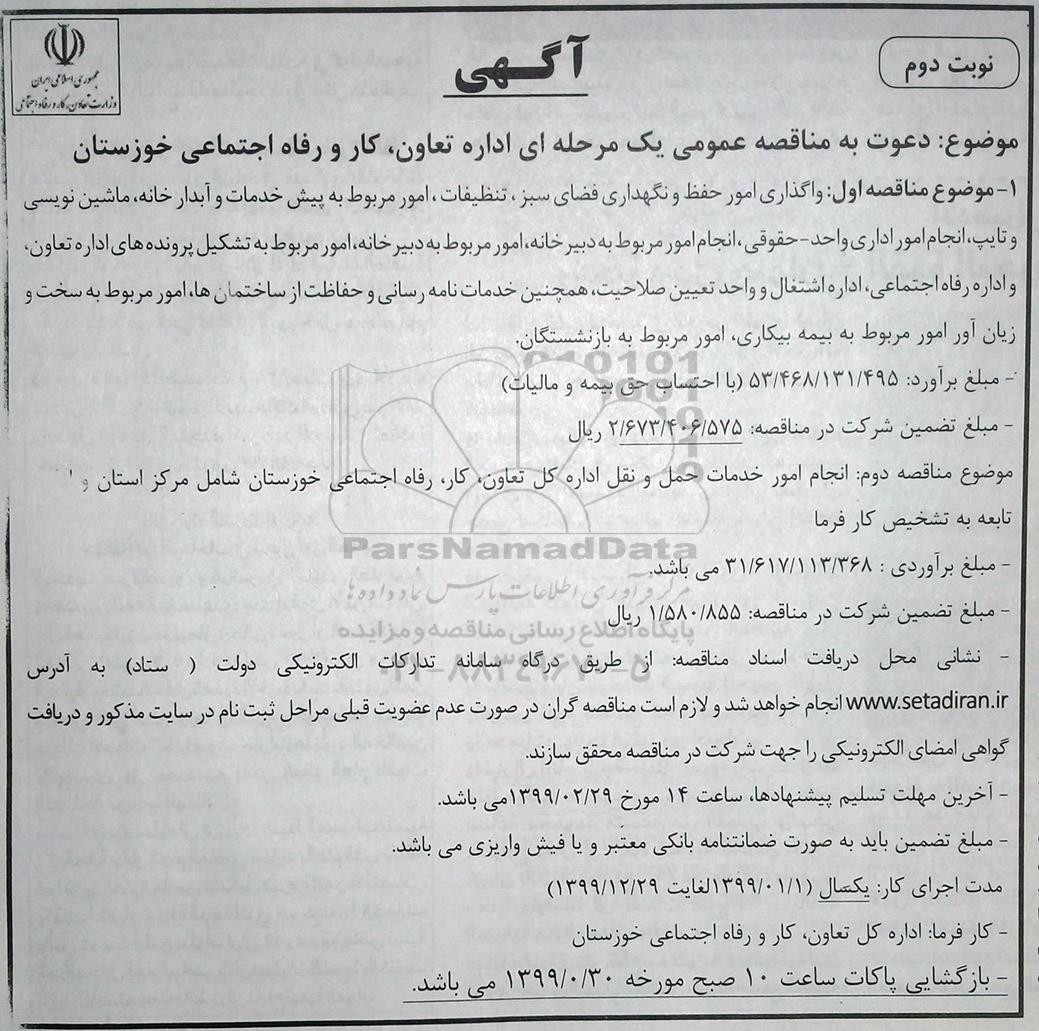 جمهوری اسلامی ایران
وزارت تعاون، کار و رفاه اجتماعی
آگهی
نوبت دوم
موضوع: دعوت به مناقصه عمومی یک مرحله ای اداره تعاون، کار و رفاه اجتماعی خوزستان
۱- موضوع مناقصه اول: واگذاری امور حفظ و نگهداری فضای سبز، تنظیفات، امور مربوط به پیش خدمات و آبدار خانه، ماشین نویسی
و تایپ، انجام امور اداری واحد-حقوقی، انجام امور مربوط به دبیر خانه، امور مربوط به دبیر خانه، امور مربوط به تشکیل پرونده های اداره تعاون،
و اداره رفاه اجتماعی، اداره اشتغال و واحد تعیین صلاحیت، همچنین خدمات نامه رسانی و حفاظت از ساختمان ها، امور مربوط به سخت و
زیان آور امور مربوط به بیمه بیکاری، امور مربوط به بازنشستگان.
- مبلغ برآورد: ۵۳/۴۶۸/۱۳۱/۴۹۵ (با احتساب حق بیمه و مالیات)
- مبلغ تضمین شرکت در مناقصه: ۲/۶۷۳/۴۰۶/۵۷۵ ریال
موضوع مناقصه دوم: انجام امور خدمات حمل و نقل اداره کل تعاون، کار، رفاه اجتماعی خوزستان شامل مرکز استان و
تابعه به تشخیص کار فرما
- مبلغ برآوردی : ۳۱/۶۱۷/۱۱۳/۳۶۸ می باشد.
- مبلغ تضمین شرکت در مناقصه: ۱/۵۸۰/۸۵۵ ریال
- نشانی محل دریافت اسناد مناقصه: از طریق درگاه سامانه تدارکات الکترونیکی دولت ( ستاد) به آدرس
www.setadiran.ir انجام خواهد شد و لازم است مناقصه گران در صورت عدم عضویت قبلی مراحل ثبت نام در سایت مذکور و دریافت
گواهی امضای الکترونیکی را جهت شرکت در مناقصه محقق سازند.
- آخرین مهلت تسلیم پیشنهادها، ساعت ۱۴ مورخ ۱۳۹۹/۰۲/۲۹می باشد.
- مبلغ تضمین باید به صورت ضمانتنامه بانکی معتبر و یا فیش واریزی می باشد.
مدت اجرای کار: یکسال (۱۳۹۹/۰۱/۱لغایت ۱۳۹۹/۱۲/۲۹)
- کار فرما: اداره کل تعاون، کار و رفاه اجتماعی خوزستان
- بازگشایی پاکات ساعت ۱۰ صبح مورخه ۱۳۹۹/۰/۳۰ می باشد.
ParsNamadData
مرکز فرآوری اطلاعات پارس نماد داده ها
پایگاه اطلاع رسانی مناقصه و مزایده